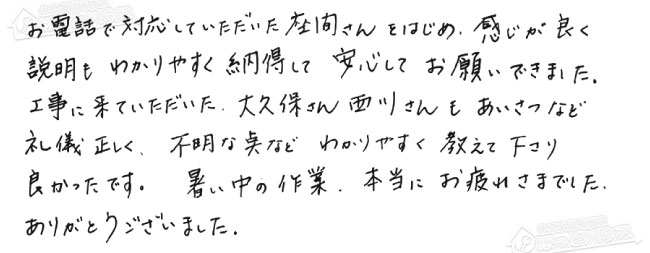 お電話で対応していただいた座間さんをはじめ、感じが良く
説明もわかりやすく納得して安心してお願いできました。
工事に来ていただいた、大久保さん西川さんもあいさつなど
礼儀正しく、不明な点などわかりやすく教えて下さり
良かったです。暑い中の作業、本当にお疲れさまでした。
ありがとうございました。